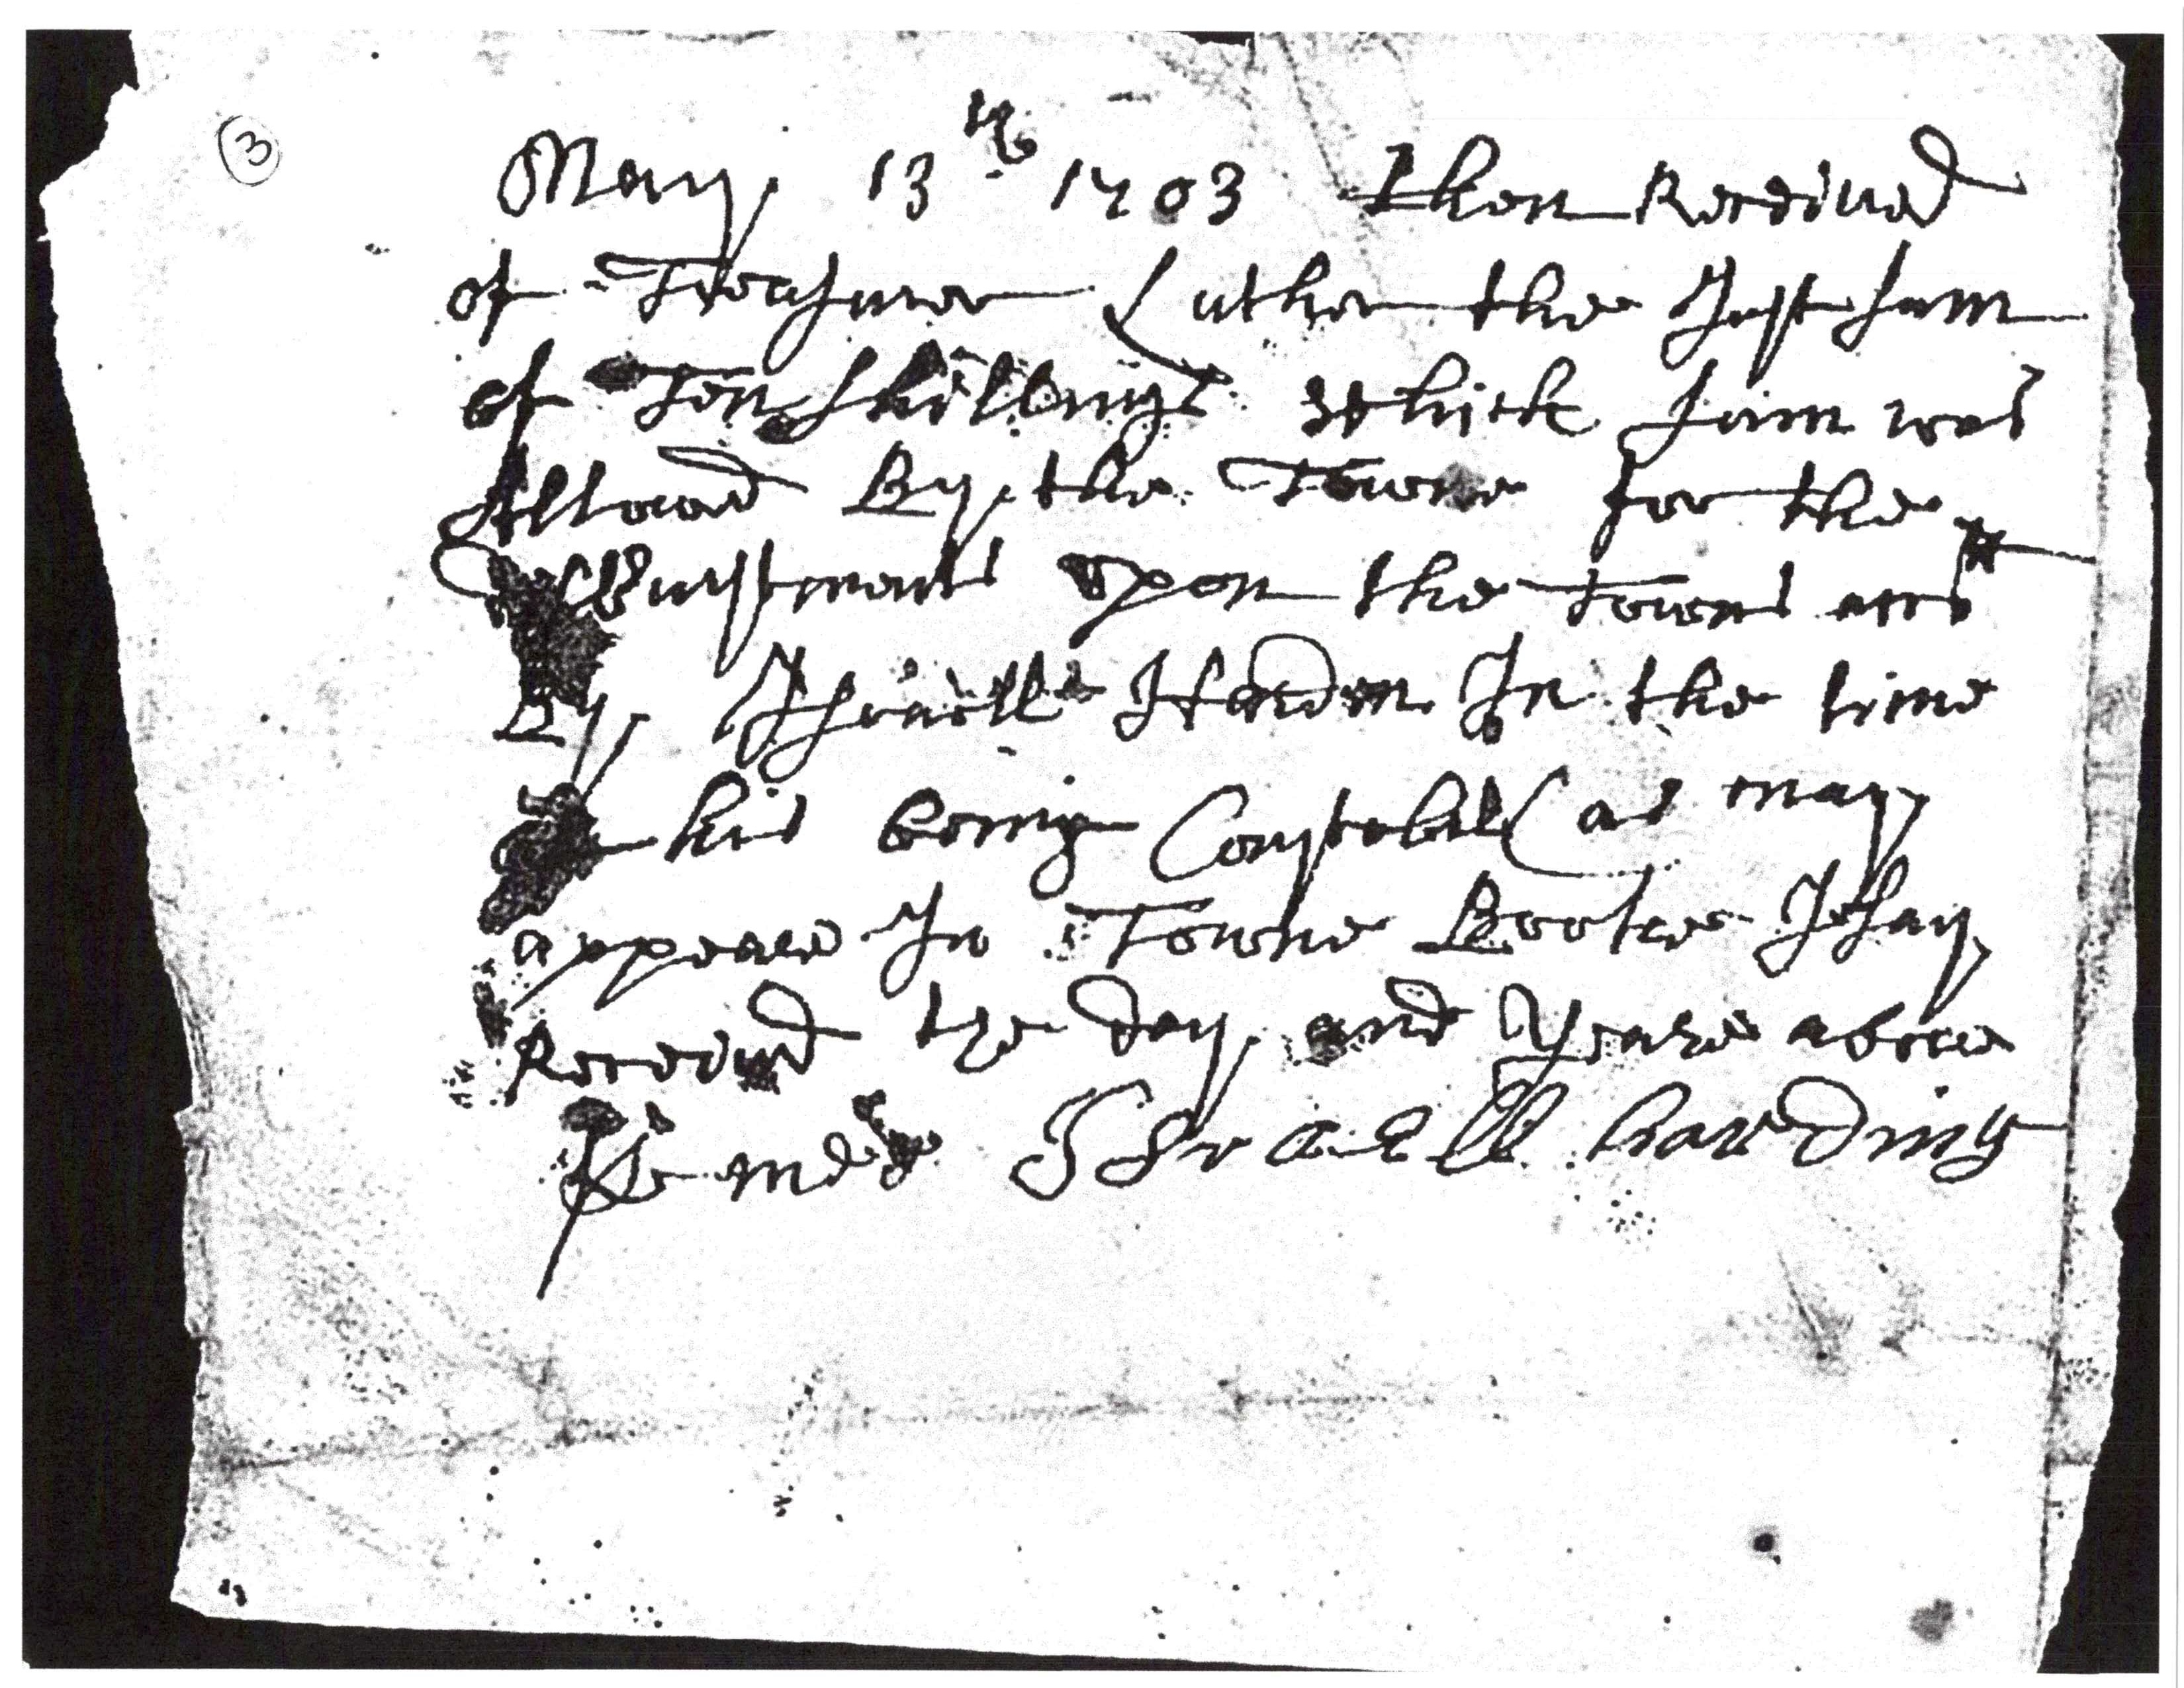 3
May 13th 1703 then Received
of Treasurer Luther the Just sum
of Ten shillings which sum was
Allowed By the Towne for the
upon the Towns acct
By Israell Harden In the time
his being Constabll as may
appeare In Towne Booke I say
Received the day and Yeare above
Israell harding